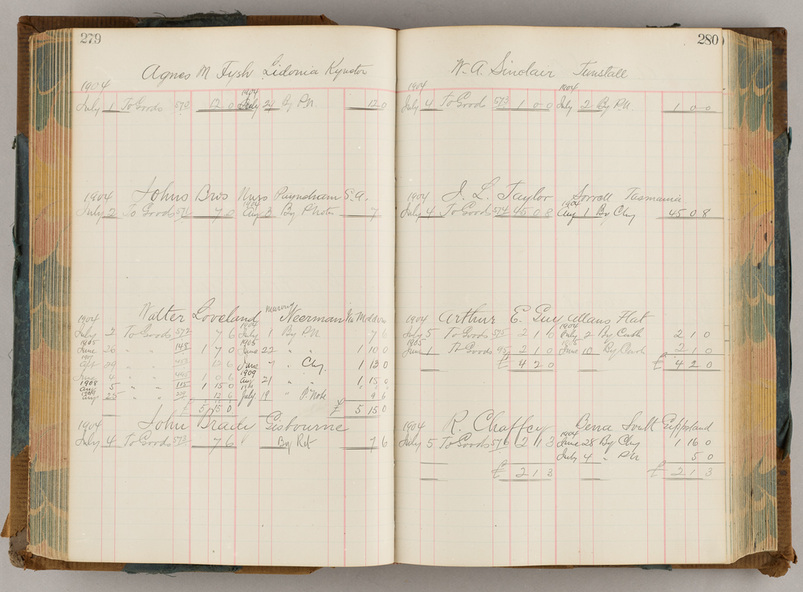 279
Agnes M Fysh Sidonia Kyneton
1904 1904
July 1 To Goods 573 12 0 July 21 By PN 12 0
1904 Johns Bros Nurs Payneham S.A.
July 2 To Goods 7 0 Aug 3 By P Note 7
1904 Walter Loveland Neerman
July 2 To Goods 572 7 6 July 1 By PN 7 6
1905 1905
June 26 " " 148 1 7 0 June 22 1 10 0
1907
" " June " " Chq 1 13 0
1908 1909
5 " " 115 1 15 0 Aug 21 " 1 15 0
25 " " July 19 " P Note 9 6
£ 5 15 0 £ 5 15 0
1904 John Braite Gisbourne
July 4 To Goods 573 7 6 By Ret 7 6
280
W. A. Sinclair Tunstall
1904 1904
July 4 To Goods 573 1 0 0 July 2 By PN 1 0 0
1904 J. L. Taylor Sorrell Tasmania
1904
July 4 To Goods 574 45 0 8 Aug 1 By Chq 45 0 8
1904 Arthur E. Guy Allans Flat
1904
July 5 To Goods 575 2 1 0 July 2 By Cash 2 1 0
1905 1905
June 1 To Goods 95 2 1 0 June 10 By Cash 2 1 0
£ 4 2 0 £ 4 2 0
1904 R. Chaffey South Gippsland
1904
July 5 To Goods 576 2 1 3 June 28 By Chq 1 16 0
July 4 " PN 5 0
£ 2 1 3 £ 2 1 3